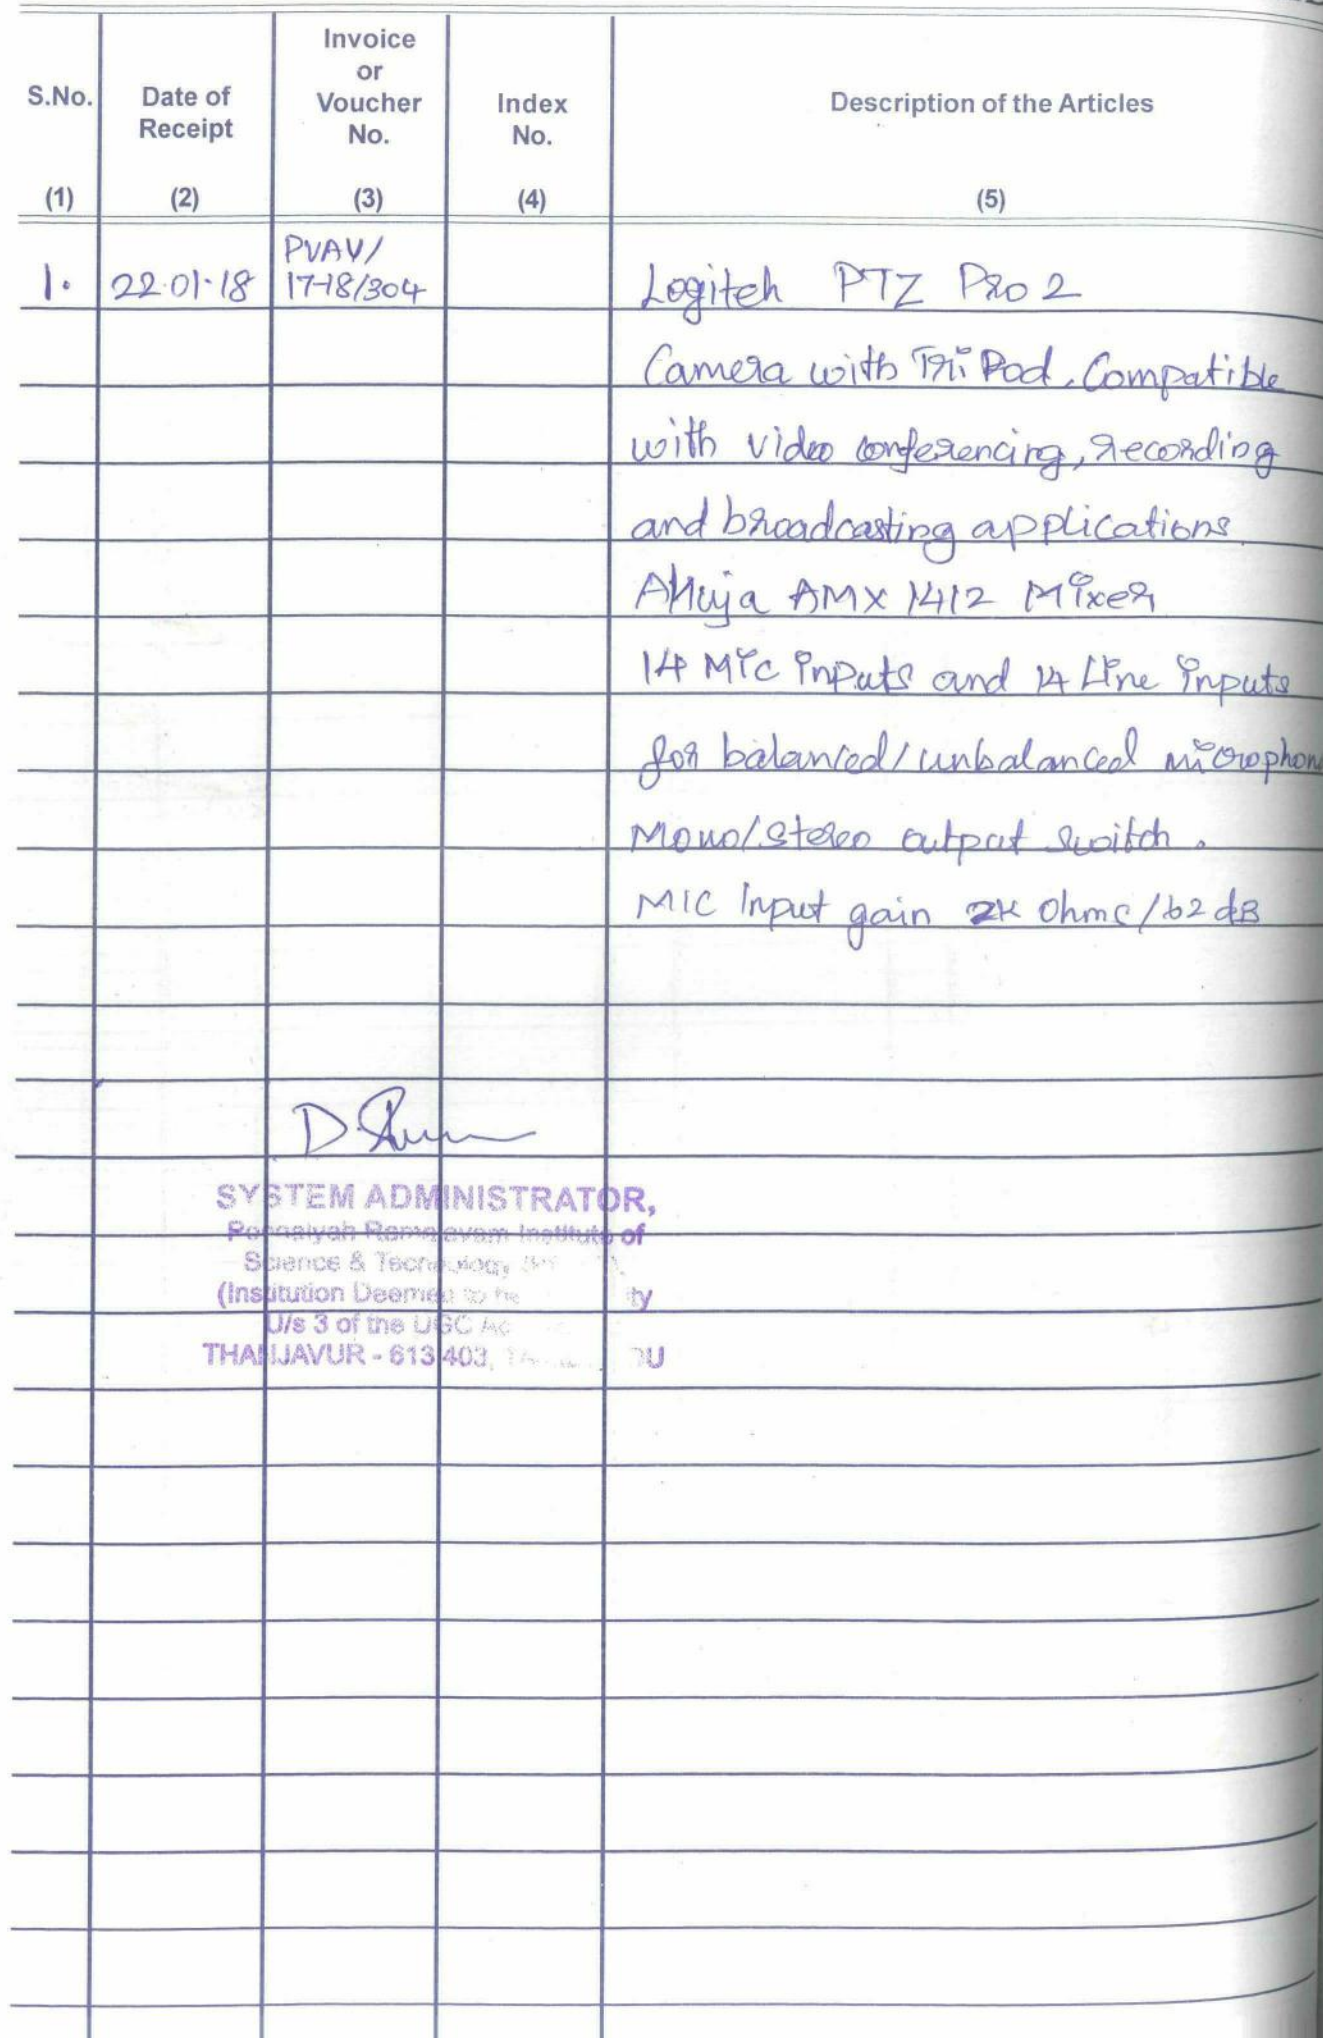 S.No.
Date of
Receipt
Invoice
or
Voucher
No.
Index
No.
Description of the Articles
(1) (2) (3) (4) (5)
1. 22.01.18 PVAV/
17-18/304
Logiteh PTZ Pro 2
Camera with Tri Pod, Compatible
with video conferencing, recording
and broadcasting applications
Ahuja AMX 1412 Mixer
14 Mic inputs and 14 Line inputs
for balanced/unbalanced microphon
Mono/Stereo output switch.
MIC Input gain 2K Ohms/62 dB
D.
SYSTEM ADMINISTRATOR,
Institute of
Science & Technology
(Institution Deemed to be
U/s 3 of the UGC Ac
THANJAVUR - 613 403,